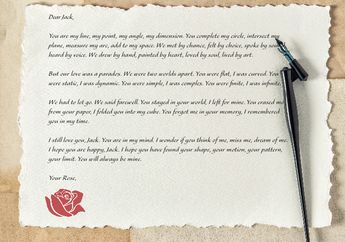 Dear Jack,
You are my line, my point, my angle, my dimension. You complete my circle, intersect my
plane, measure my arc, add to my space. We met by chance, felt by choice, spoke by soul,
heard by voice. We drew by hand, painted by heart, loved by soul, lived by art.
But our love was a paradox. We were two worlds apart. You were flat, I was curved. You
were static, I was dynamic. You were simple, I was complex. You were finite, I was infinite.
We had to let go. We said farewell. You stayed in your world, I left for mine. You erased me
from your paper, I folded you into my cube. You forgot me in your memory, I remembered
you in my time.
I still love you, Jack. You are in my mind. I wonder if you think of me, miss me, dream of me.
I hope you are happy, Jack. I hope you have found your shape, your motion, your pattern,
your limit. You will always be mine.
Your Rose,